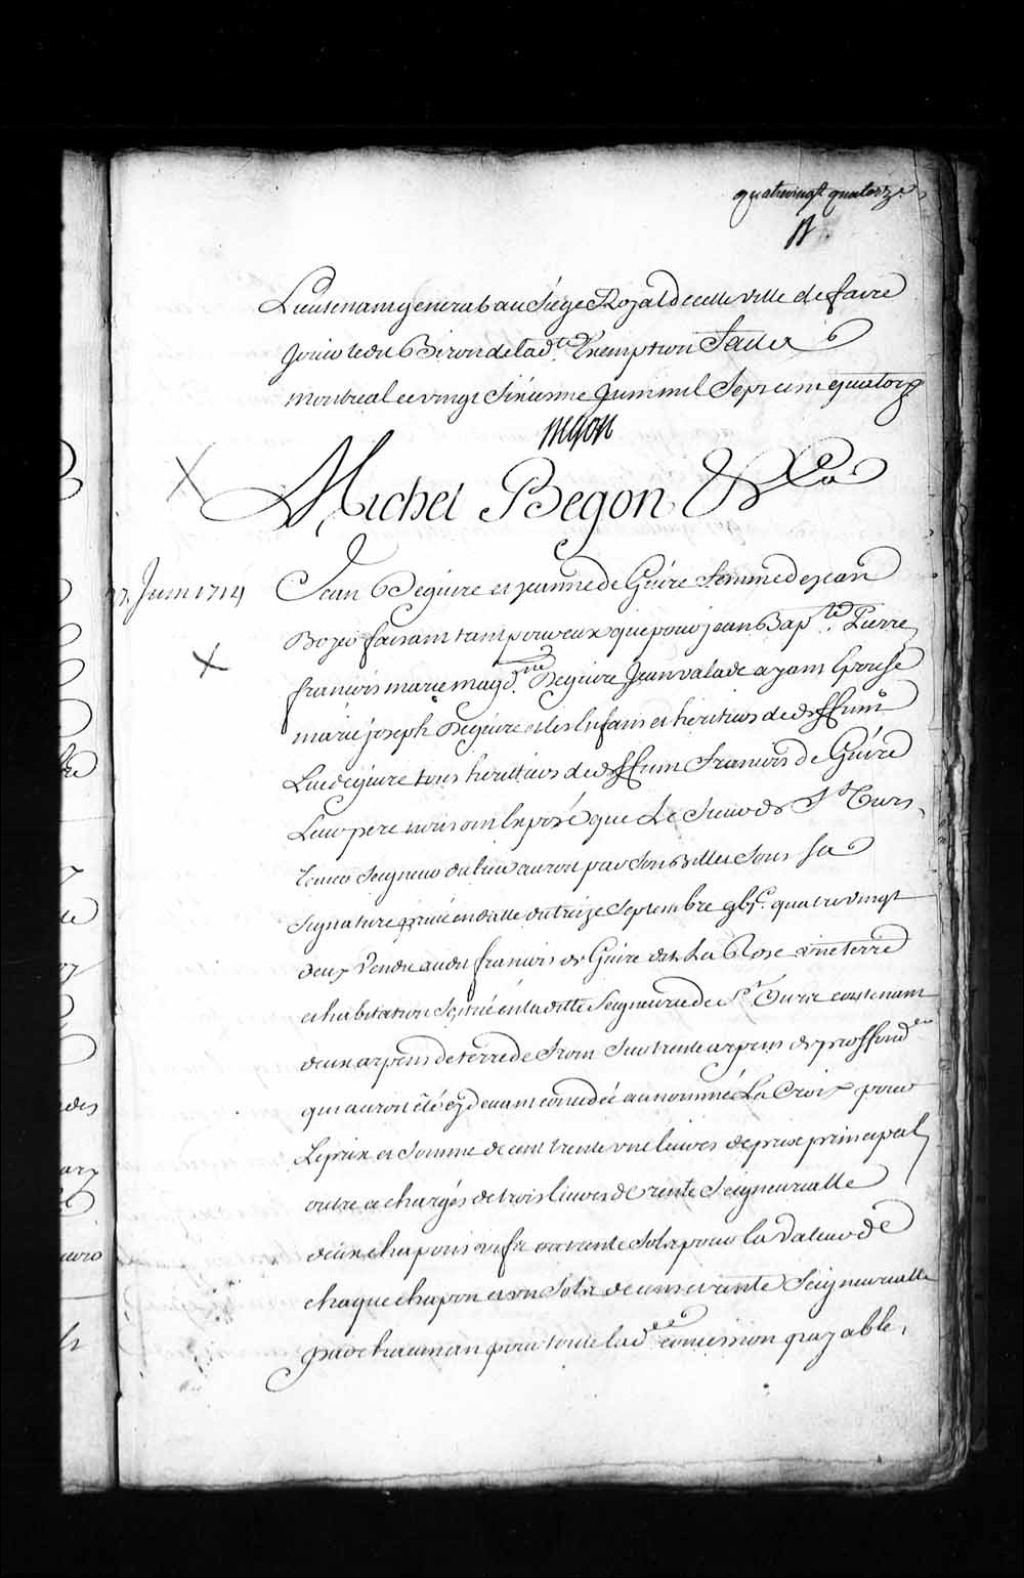 quatrevingt quatorze
Lieutenant general au Siege Royal de cette ville de faire
Jouir ledit Biron de lad.te Exemption Fait a
Montreal ce vingt Sixieme Juin mil Sept cent quatorze
Begon
Michel Begon &ca
27. Juin 1714 Jean Deguire et jeanne de Guire femme de jean
Bozeo faisant tant pour eux que pour jean Bap.te Pierre
francois marie magd.ne Deguire Jean valade ayant Epousé
marie joseph Deguire et les Enfans et heritiers de deffunt
Luc deguire tous heritiers de deffunt Francois de Guire
Leur pere nous ont Exposé que Le Sieur de St Ours
Seigneur du lieu auroit par Son Billet Sous Sa
Signature privée en datte du treize Septembre gbjc. quatrevingt
deux Vendu audit francois de Guire dit La Rose une terre
et habitation Scituée en laditte Seigneurie de St Ours contenant
deux arpens de terre de front Sur trente arpens de proffond.eur
qui auroit été cy devant concedée au nommé La Croix pour
Le prix et Somme de cent trente une livres de prix principal
outre et chargés de trois livres de rente Seigneurialle
deux chapons vifs ou trente Sols pour la valeur de
chaque chapon et un Sol de cens et rente Seigneurialle
par chacun an pour toute lad.e concession payable,